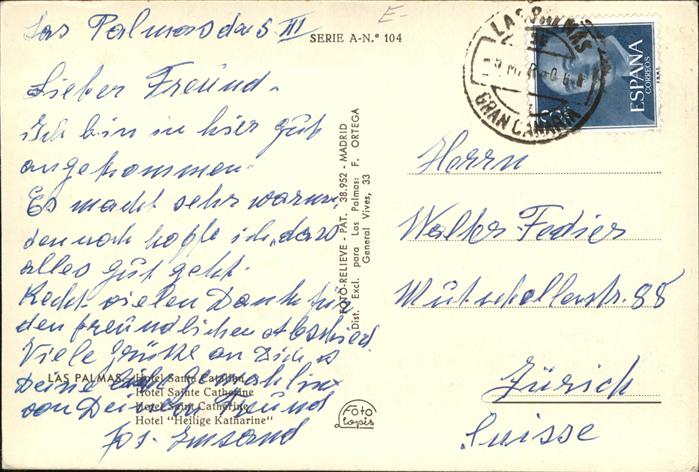 Las Palmas das 5 III
SERIE A-N.º 104
Lieber Freund.
Ich bin in hier gut
angekommen.
Es macht sehr warm
dennoch hoffe ich, dass
alles gut geht.
Recht vielen Dank für
den freundlichen Abschied.
Viele Grüsse an Dich &
Deine Gemahlin
von Deinem Freund
Jos.
LAS PALMAS. Hotel Santa Catalina
Hotel Sainte Catherine
Hotel Saint Catherine
Hotel "Heilige Katharine"
FOTO-RELIEVE - PAT. 38.952 - MADRID
Dist. Excl. para Las Palmas: F. ORTEGA
General Vives, 33
Foto
lopis
LAS PALMAS
GRAN CANARIA
ESPAÑA
CORREOS
Herrn
Walter Fedier
Mutschellenstr. 88
Zürich
Suisse